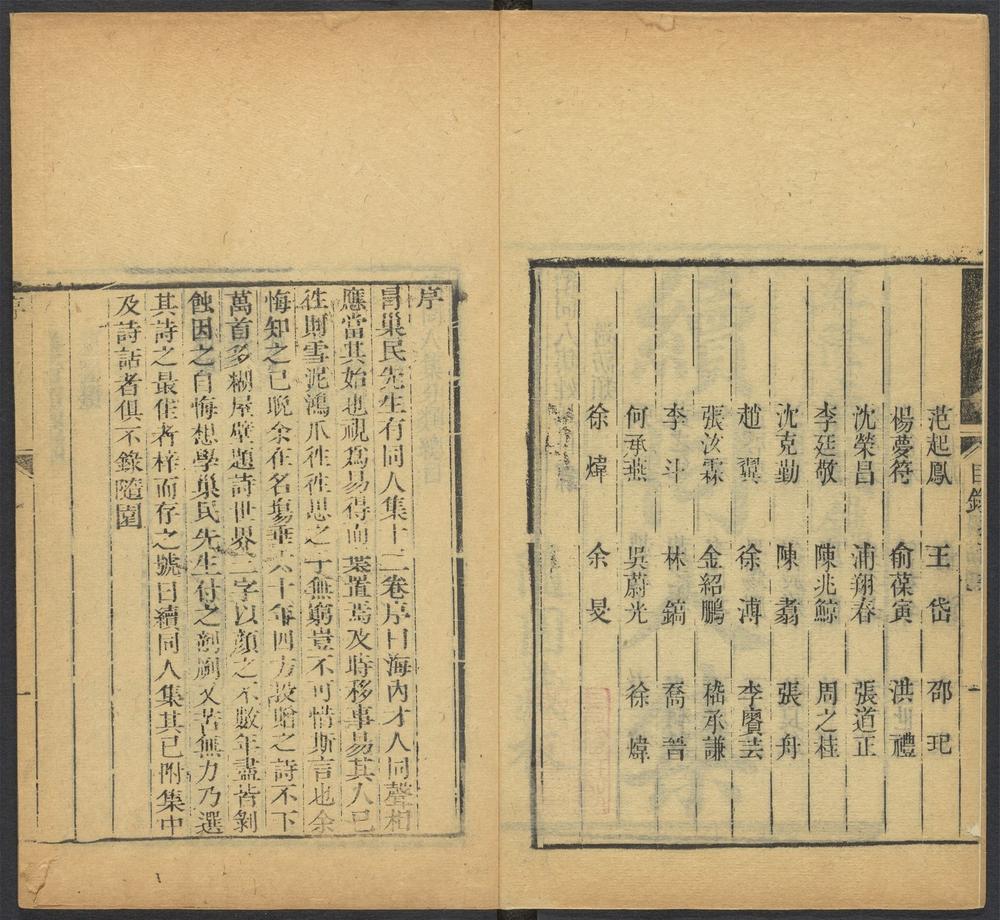 范起鳳 王岱 邵玘
楊夢符 俞葆寅 洪禮
沈榮昌 浦翔春 張道正
李廷敬 陳兆鯨 周之桂
沈克勤 陳翥 張舟
趙翼 徐溥 李賡芸
張汝霖 金紹鵬 嵇承謙
李斗 林鎬 喬晉
何承燕 吳蔚光 徐煒
徐煒 余旻
目錄
序
冒巢民先生有同人集十二卷序曰海內才人同聲相
應當其始也視爲易得而棄置焉及時移事易其人已
徃則雪泥鴻爪徃徃思之于無窮豈不可惜斯言也余
悔知之已晚余在名塲垂六十年四方投贈之詩不下
萬首多糊屋壁題詩世界二字以顏之不數年盡皆剝
蝕因之自悔想學巢民先生付之剞劂又苦無力乃選
其詩之最佳者梓而存之號曰續同人集其已附集中
及詩話者俱不錄隨園
序
一